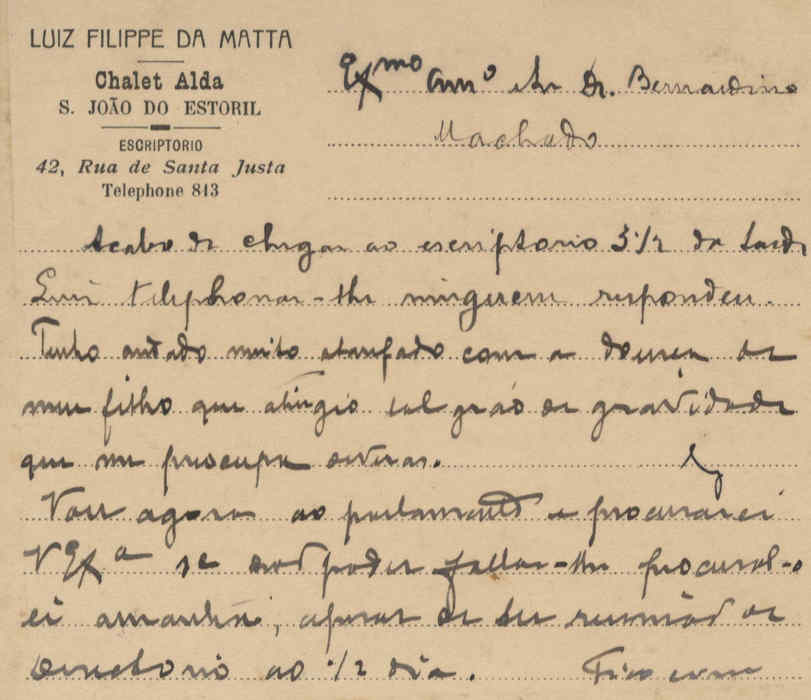 LUIZ FILIPPE DA MATTA
Chalet Alda
S. JOÃO DO ESTORIL
ESCRIPTORIO
42, Rua de Santa Justa
Telephone 813
Exmo Amo e Sr Dr. Bernardino
Machado
Acabo de chegar ao escriptorio 3 1/2 da tarde
Quiz telephonar-lhe ninguem respondeu.
Tenho andado muito atarefado com a doença de
meu filho que atingio tal gráo de gravidade
que me preocupa deveras.
Vou agora ao parlamento e procurarei
V Exa se não poder fallar-lhe procural-o
ei amanhã, apesar de ter reunião de
Directorio ao 1/2 dia. Fico com